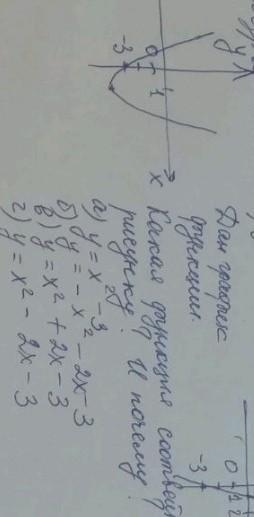 y
0
1
-3
x
Дан график
функции.
Какая функция соответ
рисунку. И почему?
а) y = x² - 3
б) y = -x² - 2x - 3
в) y = x² + 2x - 3
г) y = x² - 2x - 3
0
1
2
-3